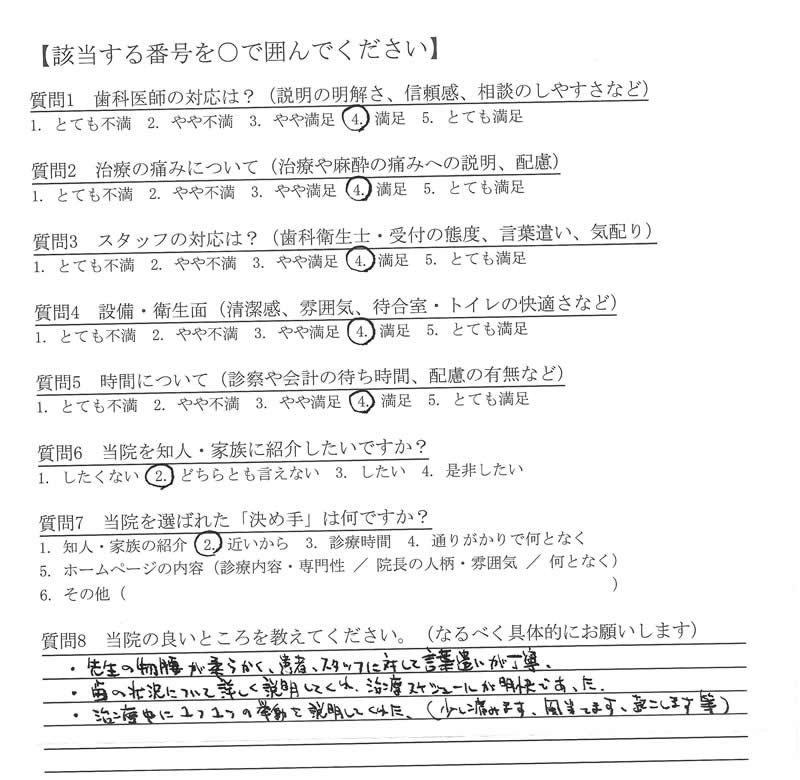 【該当する番号を○で囲んでください】
質問1　歯科医師の対応は？（説明の明解さ、信頼感、相談のしやすさなど）
1. とても不満　2. やや不満　3. やや満足　4. 満足　5. とても満足
質問2　治療の痛みについて（治療や麻酔の痛みへの説明、配慮）
1. とても不満　2. やや不満　3. やや満足　4. 満足　5. とても満足
質問3　スタッフの対応は？（歯科衛生士・受付の態度、言葉遣い、気配り）
1. とても不満　2. やや不満　3. やや満足　4. 満足　5. とても満足
質問4　設備・衛生面（清潔感、雰囲気、待合室・トイレの快適さなど）
1. とても不満　2. やや不満　3. やや満足　4. 満足　5. とても満足
質問5　時間について（診察や会計の待ち時間、配慮の有無など）
1. とても不満　2. やや不満　3. やや満足　4. 満足　5. とても満足
質問6　当院を知人・家族に紹介したいですか？
1. したくない　2. どちらとも言えない　3. したい　4. 是非したい
質問7　当院を選ばれた「決め手」は何ですか？
1. 知人・家族の紹介　2. 近いから　3. 診療時間　4. 通りがかりで何となく
5. ホームページの内容（診療内容・専門性 ／ 院長の人柄・雰囲気 ／ 何となく）
6. その他（　　　　　　　　　　）
質問8　当院の良いところを教えてください。（なるべく具体的にお願いします）
・先生の物腰が柔らかく、患者、スタッフに対して言葉遣いが丁寧。
・歯の状況について詳しく説明してくれ、治療スケジュールが明快であった。
・治療中に1つ1つの挙動を説明してくれた。（少し痛みます、風当てます、起こします等）